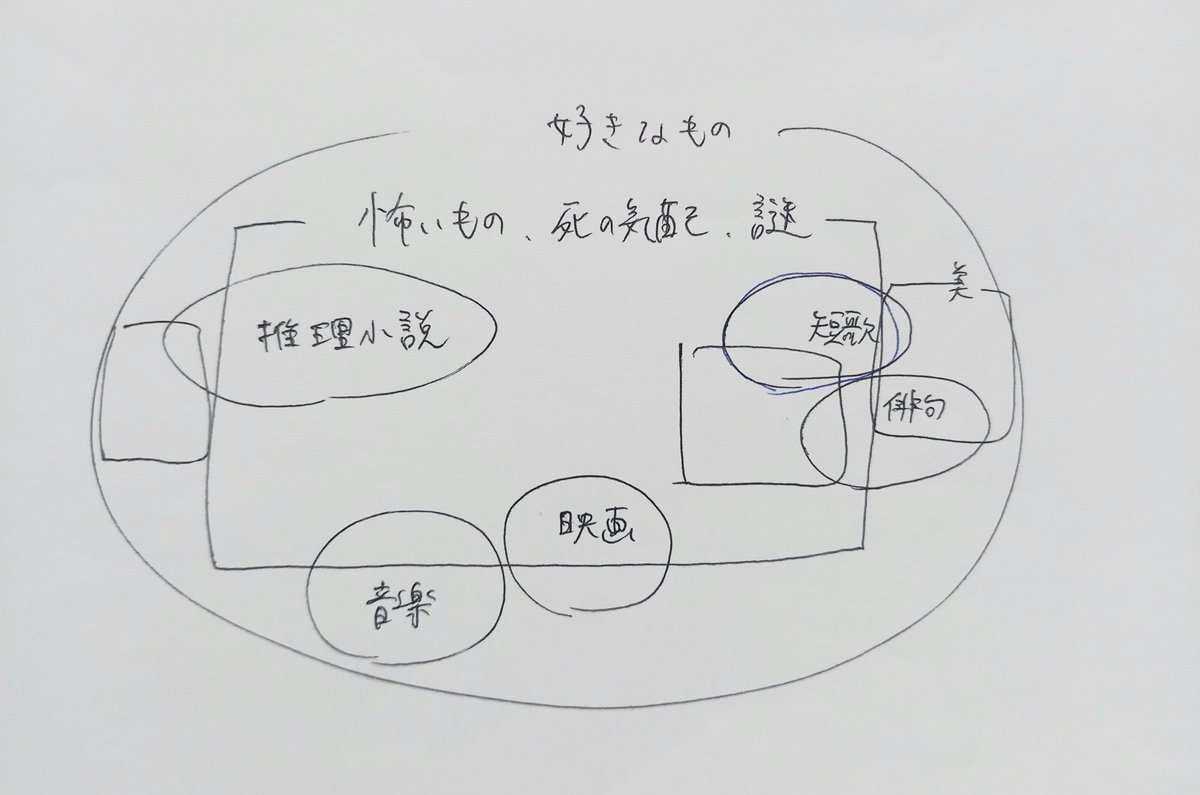 好きなもの
怖いもの、死の気配、謎
美
推理小説
短歌
俳句
映画
音楽